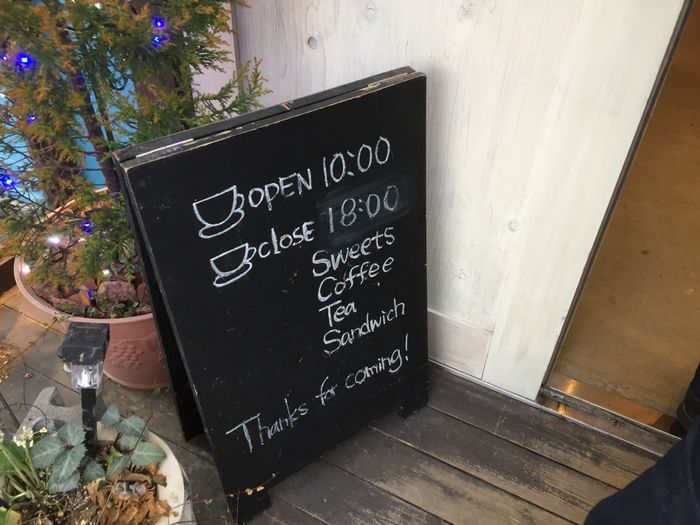 OPEN 10:00
CLOSE 18:00
Sweets
Coffee
Tea
Sandwich
Thanks for coming!